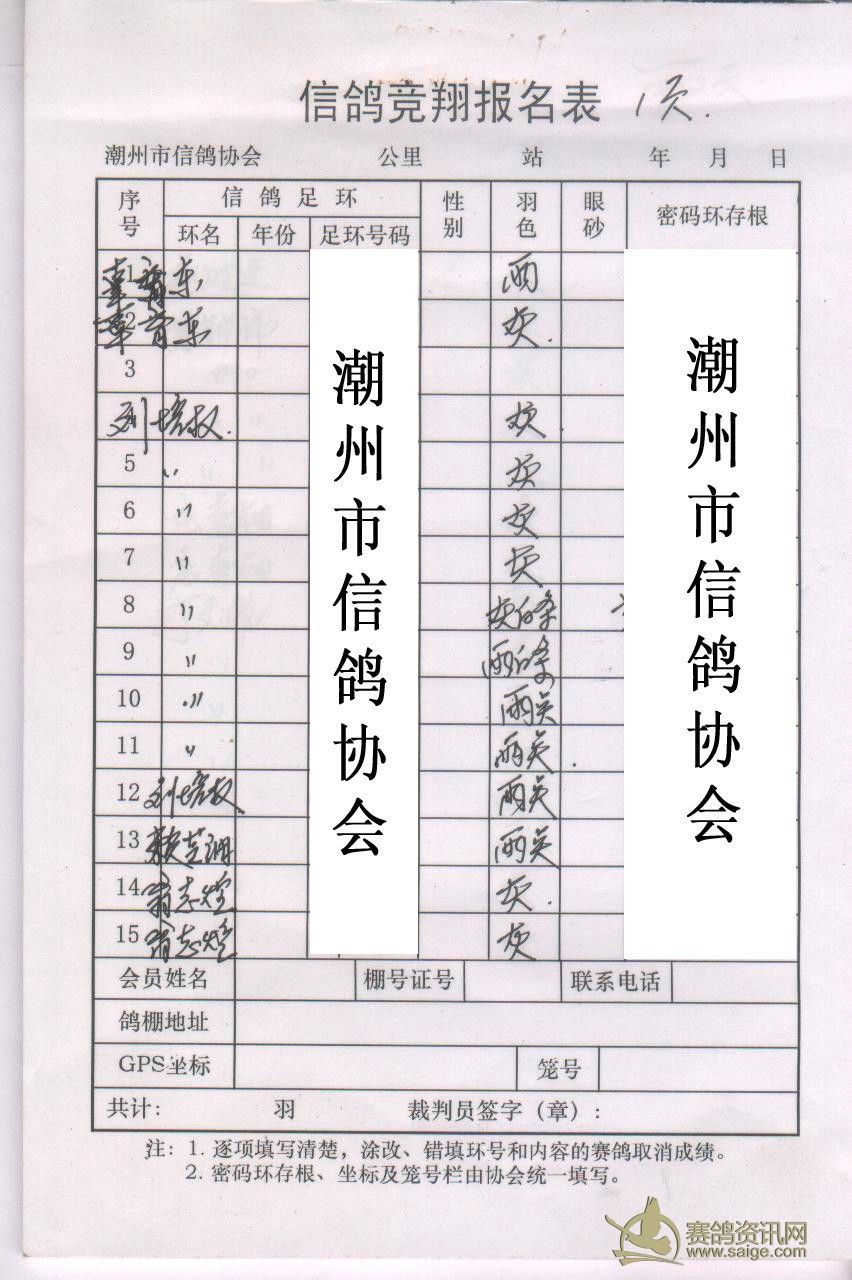 信鸽竞翔报名表 1页.
潮州市信鸽协会 公里 站 年 月 日
序号 信鸽足环 性别 羽色 眼砂 密码环存根
环名 年份 足环号码
潮州市信鸽协会
潮州市信鸽协会
1 雨
2 灰.
3
刘培叔. 灰.
5 〃 灰
6 〃 灰
7 〃 灰
8 〃 灰白条
9 〃 雨白条
10 〃 雨点
11 〃 雨点.
12 刘培叔 雨点
13 雨点
14 翁志煌 灰.
15 翁志煌 灰
会员姓名 棚号证号 联系电话
鸽棚地址
GPS坐标 笼号
共计: 羽 裁判员签字(章):
注: 1. 逐项填写清楚,涂改、错填环号和内容的赛鸽取消成绩。
2. 密码环存根、坐标及笼号栏由协会统一填写。
赛鸽资讯网
www.saige.com